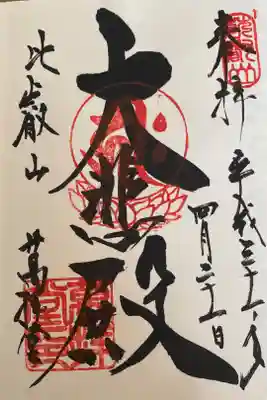 奉拝 平成三十一年
四月二十一日
大悲殿
比叡山 萬拝堂